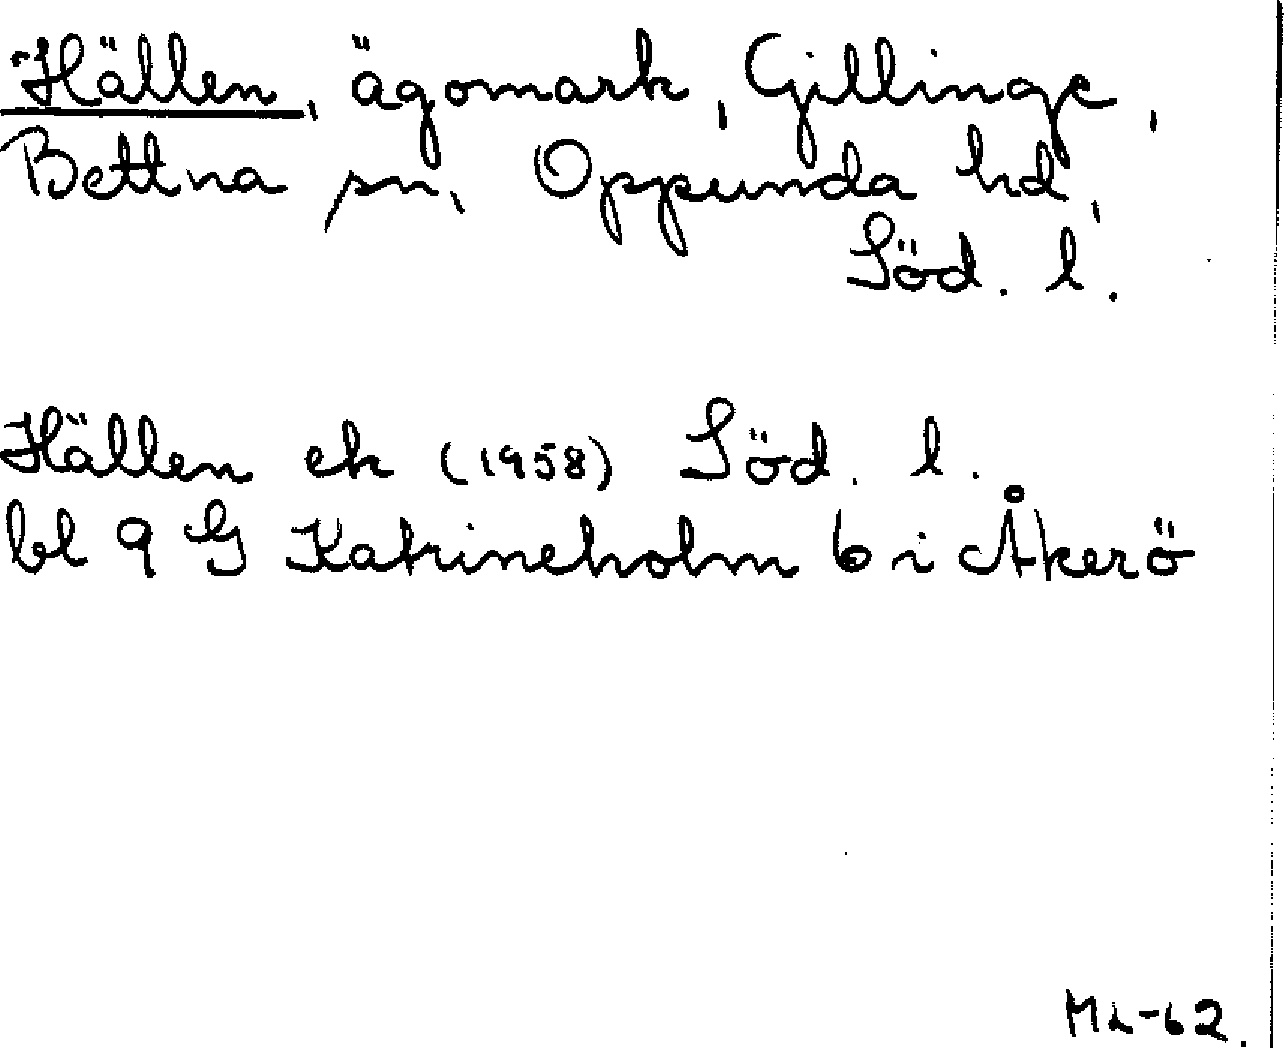 Hällen, ägomark, Gillinge,
Bettna sn, Oppunda hd,
Söd. l.
Hällen ek (1958) Söd. l.
bl 9 G Katrineholm 6 i Åkerö